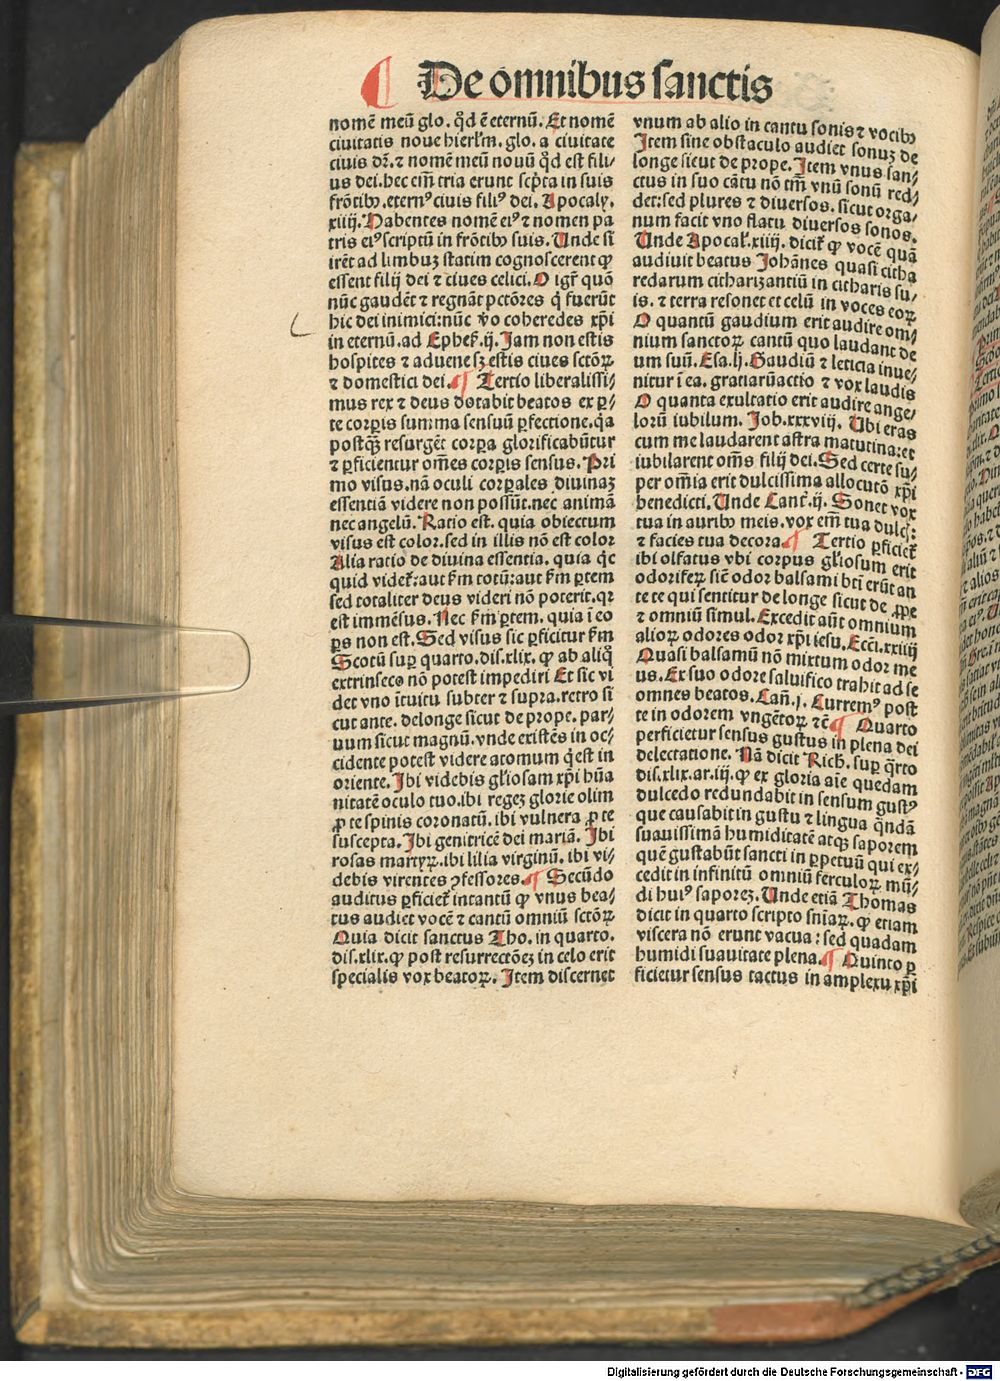 De omnibus sanctis
nomē meū glo. q̄d ē eternū. Et nomē
ciuitatis noue hierl'm. glo. a ciuitate
ciuis dr̄. ⁊ nomē meū nouū q̄d est fili/
us dei. hec em̄ tria erunt scp̄ta in suis
frōtibꝰ. eternꝰ ciuis filiꝰ dei. Apocalỹ.
xiiij. Habentes nomē eiꝰ ⁊ nomen pa
tris eiꝰ scriptū in frōtibꝰ suis. Unde si
irēt ad limbuꝫ statim cognoscerent ꝙ
essent filij dei ⁊ ciues celici. O igr̄ quō
nūc gaudēt ⁊ regnāt pctōres q̄ fuerūt
hic dei inimici: nūc ṽo coheredes xp̄i
in eternū. ad Ephes̄. ij. Jam non estis
hospites ⁊ aduene sꝫ estis ciues sctōꝝ
⁊ domestici dei. ¶ Tertio liberalissi/
mus rex ⁊ deus dotabit beatos ex ꝑ/
te corꝑis summa sensuū ꝑfectione. q̄a
postqꝫ resurgēt corꝑa glorificabūtur
⁊ ꝑficientur om̄es corꝑis sensus. Pri
mo visus. nā oculi corꝑales diuinaꝫ
essentiā videre non possūt. nec animā
nec angelū. Ratio est. quia obiectum
visus est color. sed in illis nō est color
Alia ratio de diuina essentia. quia q̄c
quid videt̄: aut s̄m totū: aut s̄m ꝑtem
sed totaliter deus videri nō poterit. qꝛ
est immēsus. Nec s̄m ꝑtem. quia ī eo
ꝑs non est. Sed visus sic ꝑficitur s̄m
Scotū suꝑ quarto. dis. xlix. ꝙ ab aliq̄
extrinseco nō potest impediri Et sic vi
det vno ītuitu subter ⁊ supra. retro si
cut ante. de longe sicut de prope. par/
uum sicut magnū. vnde existēs in oc/
cidente potest videre atomum q̄ est in
oriente. Ibi videbis gl'iosam xp̄i hūa
nitatē oculo tuo. ibi regeꝫ glorie olim
ꝓ te spinis coronatū. ibi vulnera ꝓ te
suscepta. Ibi genitricē dei mariā. Ibi
rosas martyꝝ. ibi lilia virginū. ibi vi/
debis virentes ꝯfessores. ¶ Secūdo
auditus ꝑficiet̄ intantū ꝙ vnus bea/
tus audiet vocē ⁊ cantū omniū sctōꝝ
Quia dicit sanctus Tho. in quarto.
dis. xlix. ꝙ post resurrectōeꝫ in celo erit
specialis vox beatoꝝ. Item discernet
vnum ab alio in cantu sonis ⁊ vocibꝰ
Item sine obstaculo audiet sonuꝫ de
longe sicut de prope. Item vnus san/
ctus in suo cātu nō tm̄ vnū sonū red/
det: sed plures ⁊ diuersos. sicut orga/
num facit vno flatu diuersos sonos.
Unde Apocal'. xiiij. dicit̄ ꝙ vocē quā
audiuit beatus Johānes quasi citha
redarum citharizantiū in citharis su/
is. ⁊ terra resonet et celū in voces eoꝝ
O quantū gaudium erit audire om/
nium sanctoꝝ cantū quo laudant de
um suū. Esa. lj. Gaudiū ⁊ leticia inue/
nitur ī ea. gratiarū actio ⁊ vox laudis
O quanta exultatio erit audire ange/
lorū iubilum. Job. xxxviij. Ubi eras
cum me laudarent astra matutina: et
iubilarent om̄s filij dei. Sed certe su/
per om̄ia erit dulcissima allocutō xp̄i
benedicti. Unde Cant̄. ij. Sonet vox
tua in auribꝰ meis. vox em̄ tua dulcꝭ:
⁊ facies tua decora. ¶ Tertio ꝑficiet̄
ibi olfatus vbi corpus gl'iosum erit
odoriferꝝ siē odor balsami bt̄i erūt an
te te qui sentitur de longe sicut de ꝓpe
⁊ omniū simul. Excedit aūt omnium
alioꝝ odores odor xp̄i iesu. Ecc̄i. xxiiij
Quasi balsamū nō mixtum odor me
us. Et suo odore saluifico trahit ad se
omnes beatos. Cañ. j. Curremꝰ post
te in odorem vngētoꝝ ⁊c̄ ¶ Quarto
perficietur sensus gustus in plena dei
delectatione. Nā dicit Rich. suꝑ q̄rto
dis. xlix. ar. iij. ꝙ ex gloria aīe quedam
dulcedo redundabit in sensum gustꝰ
que causabit in gustu ⁊ lingua q̄ndā
suauissimā humiditatē atqꝫ saporem
quē gustabūt sancti in ꝑpetuū qui ex/
cedit in infinitū omniū ferculoꝝ mū/
di huiꝰ saporeꝫ. Unde etiā Thomas
dicit in quarto scripto sn̄iaꝝ. ꝙ etiam
viscera nō erunt vacua: sed quadam
humidi suauitate plena. ¶ Quinto ꝑ
ficietur sensus tactus in amplexu xp̄i
Digitalisierung gefördert durch die Deutsche Forschungsgemeinschaft - DFG